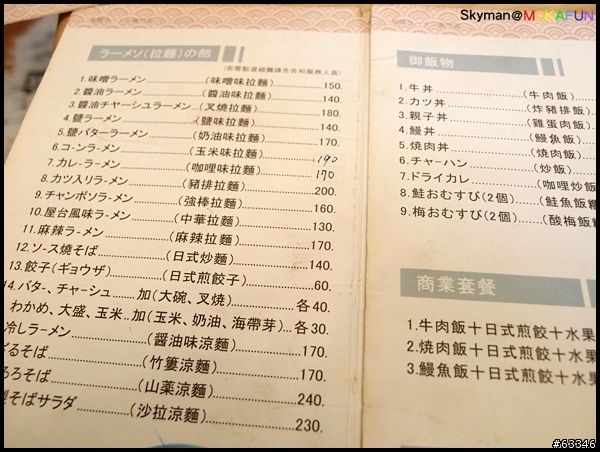 Skyman@M□KAFUN
ラーメン(拉麵)の部
(若需點選細麵請先告知服務人員)
1.味噌ラーメン (味噌味拉麵) 150.
2.醬油ラーメン (醬油味拉麵) 140.
3.醬油チャーシュラーメン (叉燒拉麵) 180
4.鹽ラーメン (鹽味拉麵) 140.
5.鹽バターラーメン (奶油味拉麵) 170
6.コーンラーメン (玉米味拉麵) 190
7.カレーラーメン (咖哩味拉麵) 170
8.カツ入りラーメン (豬排拉麵) 200.
9.チャンポンラーメン (強棒拉麵) 160
10.屋台風味ラーメン (中華拉麵) 130.
11.麻辣ラーメン (麻辣拉麵) 170.
12.ソース燒そば (日式炒麵) 140.
13.餃子(ギョウザ) (日式煎餃子) 60.
14.バター、チャーシュ 加(大碗、叉燒) 各40.
わかめ、大盛、玉米 加(玉米、奶油、海帶芽) 各30.
冷しラーメン (醬油味涼麵) 170.
ざるそば (竹簍涼麵) 170.
ろろそば (山薬涼麵) 240.
そばサラダ (沙拉涼麵) 230.
御飯物
1.牛丼 (牛肉飯)
2.カツ丼 (炸豬排飯)
3.親子丼 (雞蛋肉飯)
4.鰻丼 (鰻魚飯)
5.燒肉丼 (燒肉飯)
6.チャーハン (炒飯)
7.ドライカレ (咖哩炒飯
8.鮭おむすび(2個) (鮭魚飯糰
9.梅おむすび(2個) (酸梅飯糰
商業套餐
1.牛肉飯十日式煎餃十水果
2.燒肉飯十日式煎餃十水果
3.鰻魚飯十日式煎餃十水果
#63346